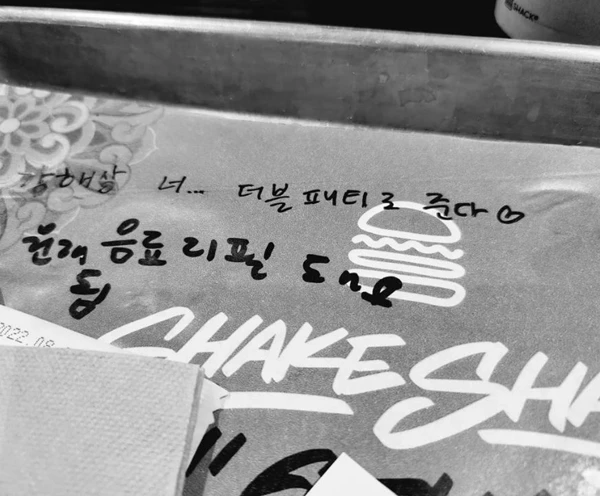 SHACK®
강해상 너... 더블 패티로 준다♡
원래 음료 리필 도 돼요
됨
2022.08
SHAKE SHA